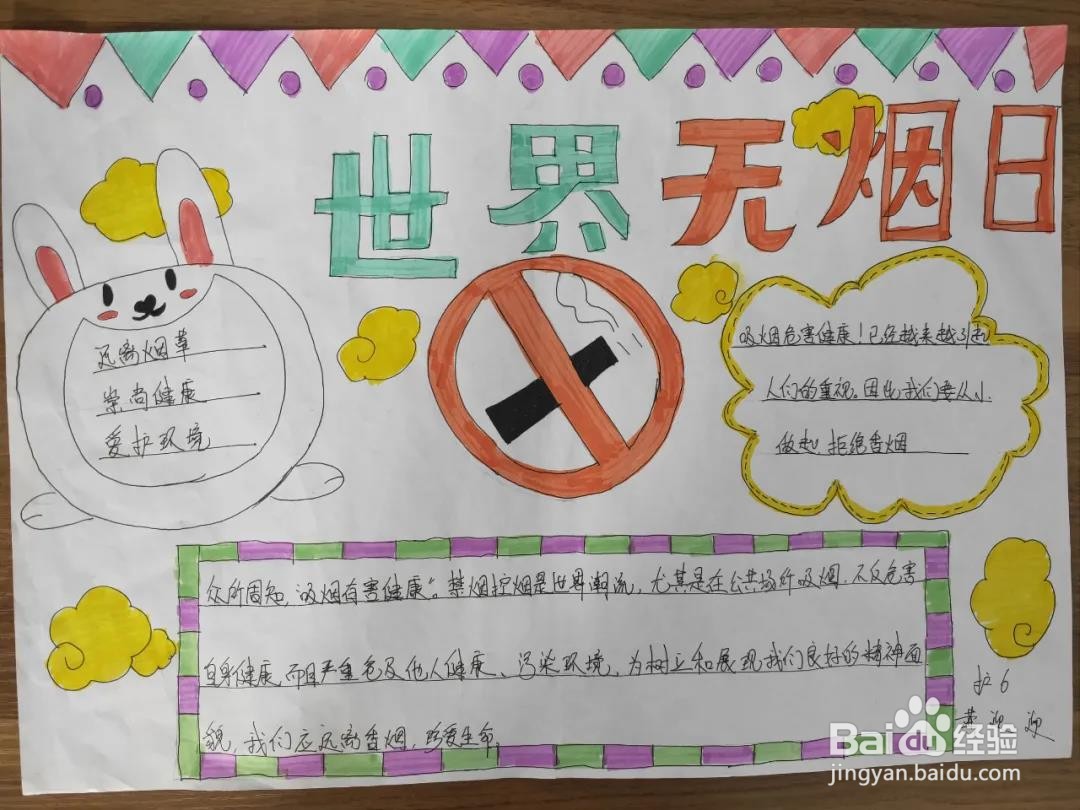 世界无烟日
远离烟草
崇尚健康
爱护环境
吸烟危害健康！已经越来越引起
人们的重视。因此我们要从小
做起，拒绝香烟
众所周知，“吸烟有害健康”。禁烟控烟是世界潮流，尤其是在公共场所吸烟，不仅危害
自身健康，而且严重危及他人健康、污染环境，为树立和展现我们良好的精神面
貌，我们应远离香烟，珍爱生命。
护6
黄迎迎
Baidu经验
jingyan.baidu.com